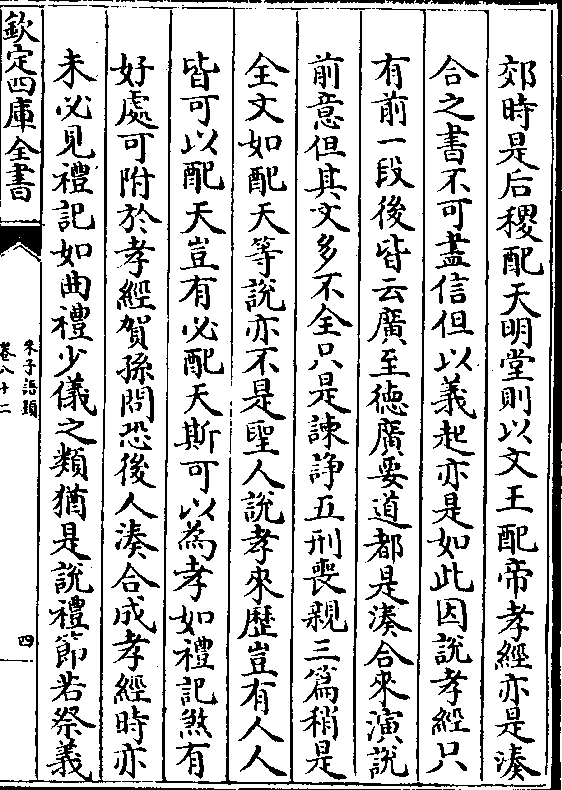 郊時是后稷配天明堂則以文王配帝孝經亦是湊
合之書不可盡信但以義起亦是如此因說孝經只
有前一段後皆云廣至德廣要道都是湊合來演說
前意但其文多不全只是諫諍五刑喪親三篇稍是
全文如配天等說亦不是聖人說孝來歷豈有人人
皆可以配天豈有必配天斯可以為孝如禮記煞有
好處可附於孝經賀孫問恐後人湊合成孝經時亦
未必見禮記如曲禮少儀之類猶是說禮節若祭義
欽定四庫全書
朱子語類
卷八十二
四